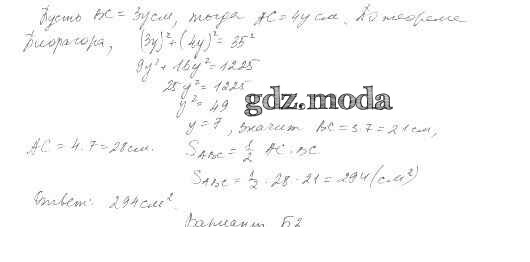 Пусть BC = 3y см, тогда AC = 4y см. По теореме
Пифагора, (3y)² + (4y)² = 35²
9y² + 16y² = 1225
25y² = 1225
y² = 49
gdz.moda
y = 7, значит BC = 3·7 = 21 см,
AC = 4·7 = 28 см. S_ABC = 1/2 AC·BC
S_ABC = 1/2 · 28 · 21 = 294 (см²)
Ответ: 294 см².
Вариант Б2